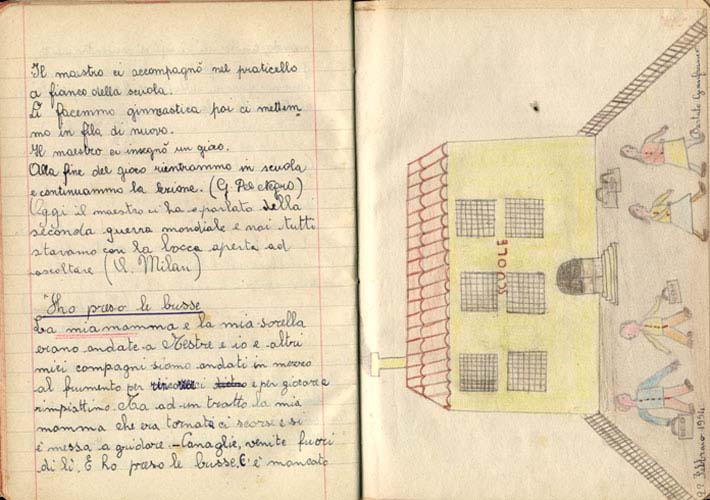 Il maestro ci accompagnò nel praticello
a fianco della scuola.
Lì facemmo ginnastica poi ci mettem
mo in fila di nuovo.
Il maestro ci insegnò un gioco.
Alla fine del gioco rientrammo in scuola
e continuammo la lezione. (G. Pel
Oggi il maestro ci ha parlato della
seconda guerra mondiale e noi tutti
stavamo con la bocca aperta ad
ascoltare (A. Milan)
Ho preso le busse
La mia mamma e la mia sorella
erano andate a Mestre e io e altri
miei compagni siamo andati in mezzo
al frumento per e per giocare a
rimpiattino. Ma ad un tratto la mia
mamma che era tornata ci scorse e si
è messa a gridare. - Canaglie, venite fuori
di lì. E ho preso le busse. C'è mancato
SCUOLE
22 Febbraio 1954
Gianfranco